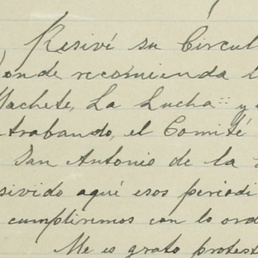 Resiví su Circul
onde recomienda l
Machete, La Lucha y
trabando, el Comité
San Antonio de la
sivido aquí esos periodi
cumplirimos con lo orde
Me es grato protest